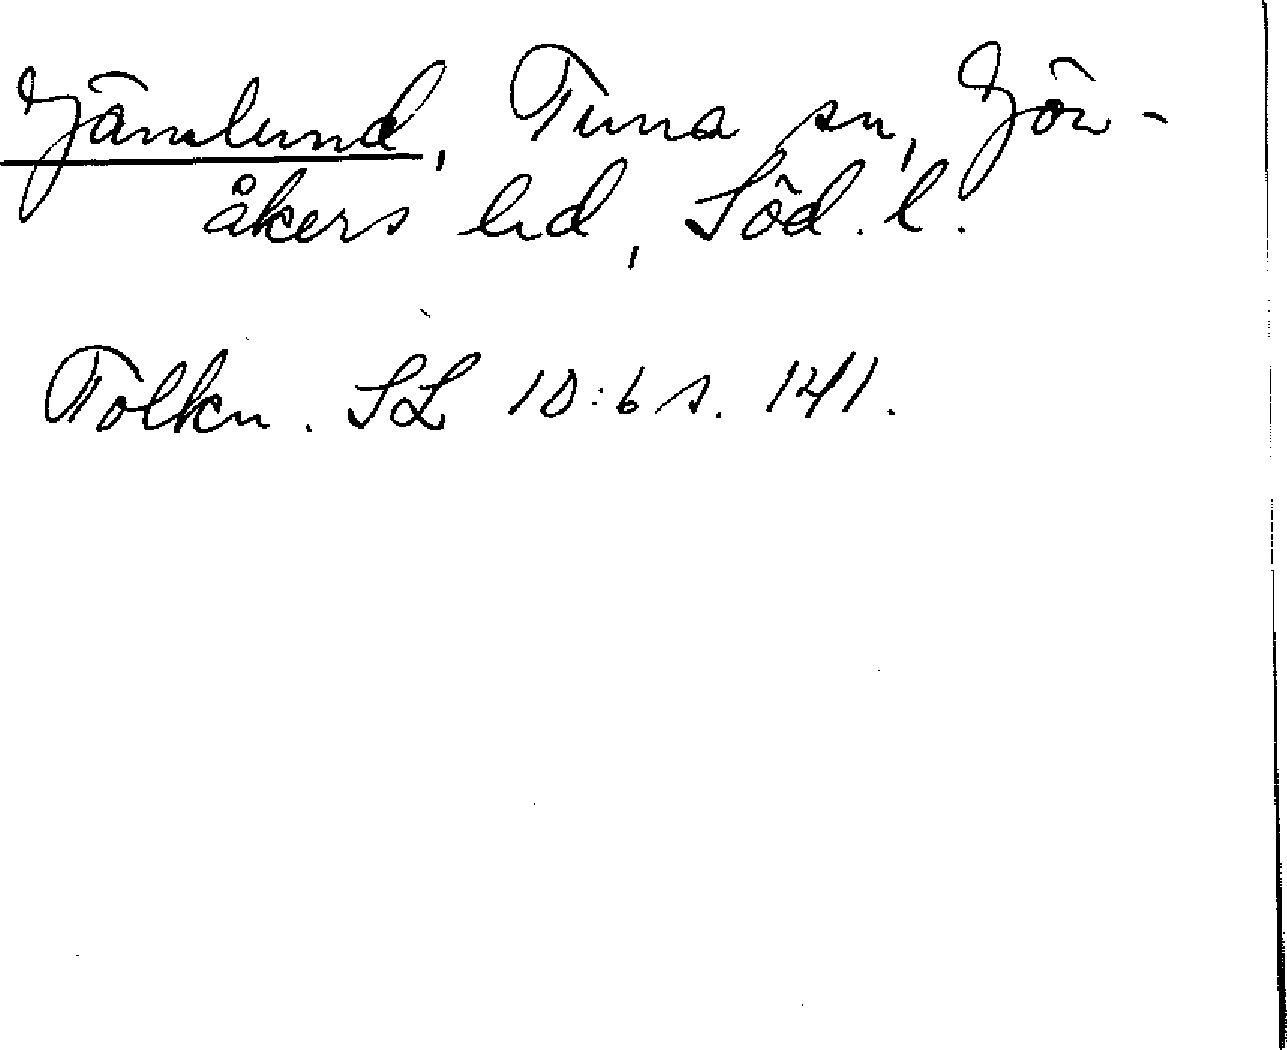 Jämlund, Tuna sn, Jön-
åkers hd, Söd. l.
Tolkn. SL 10:6 s. 141.